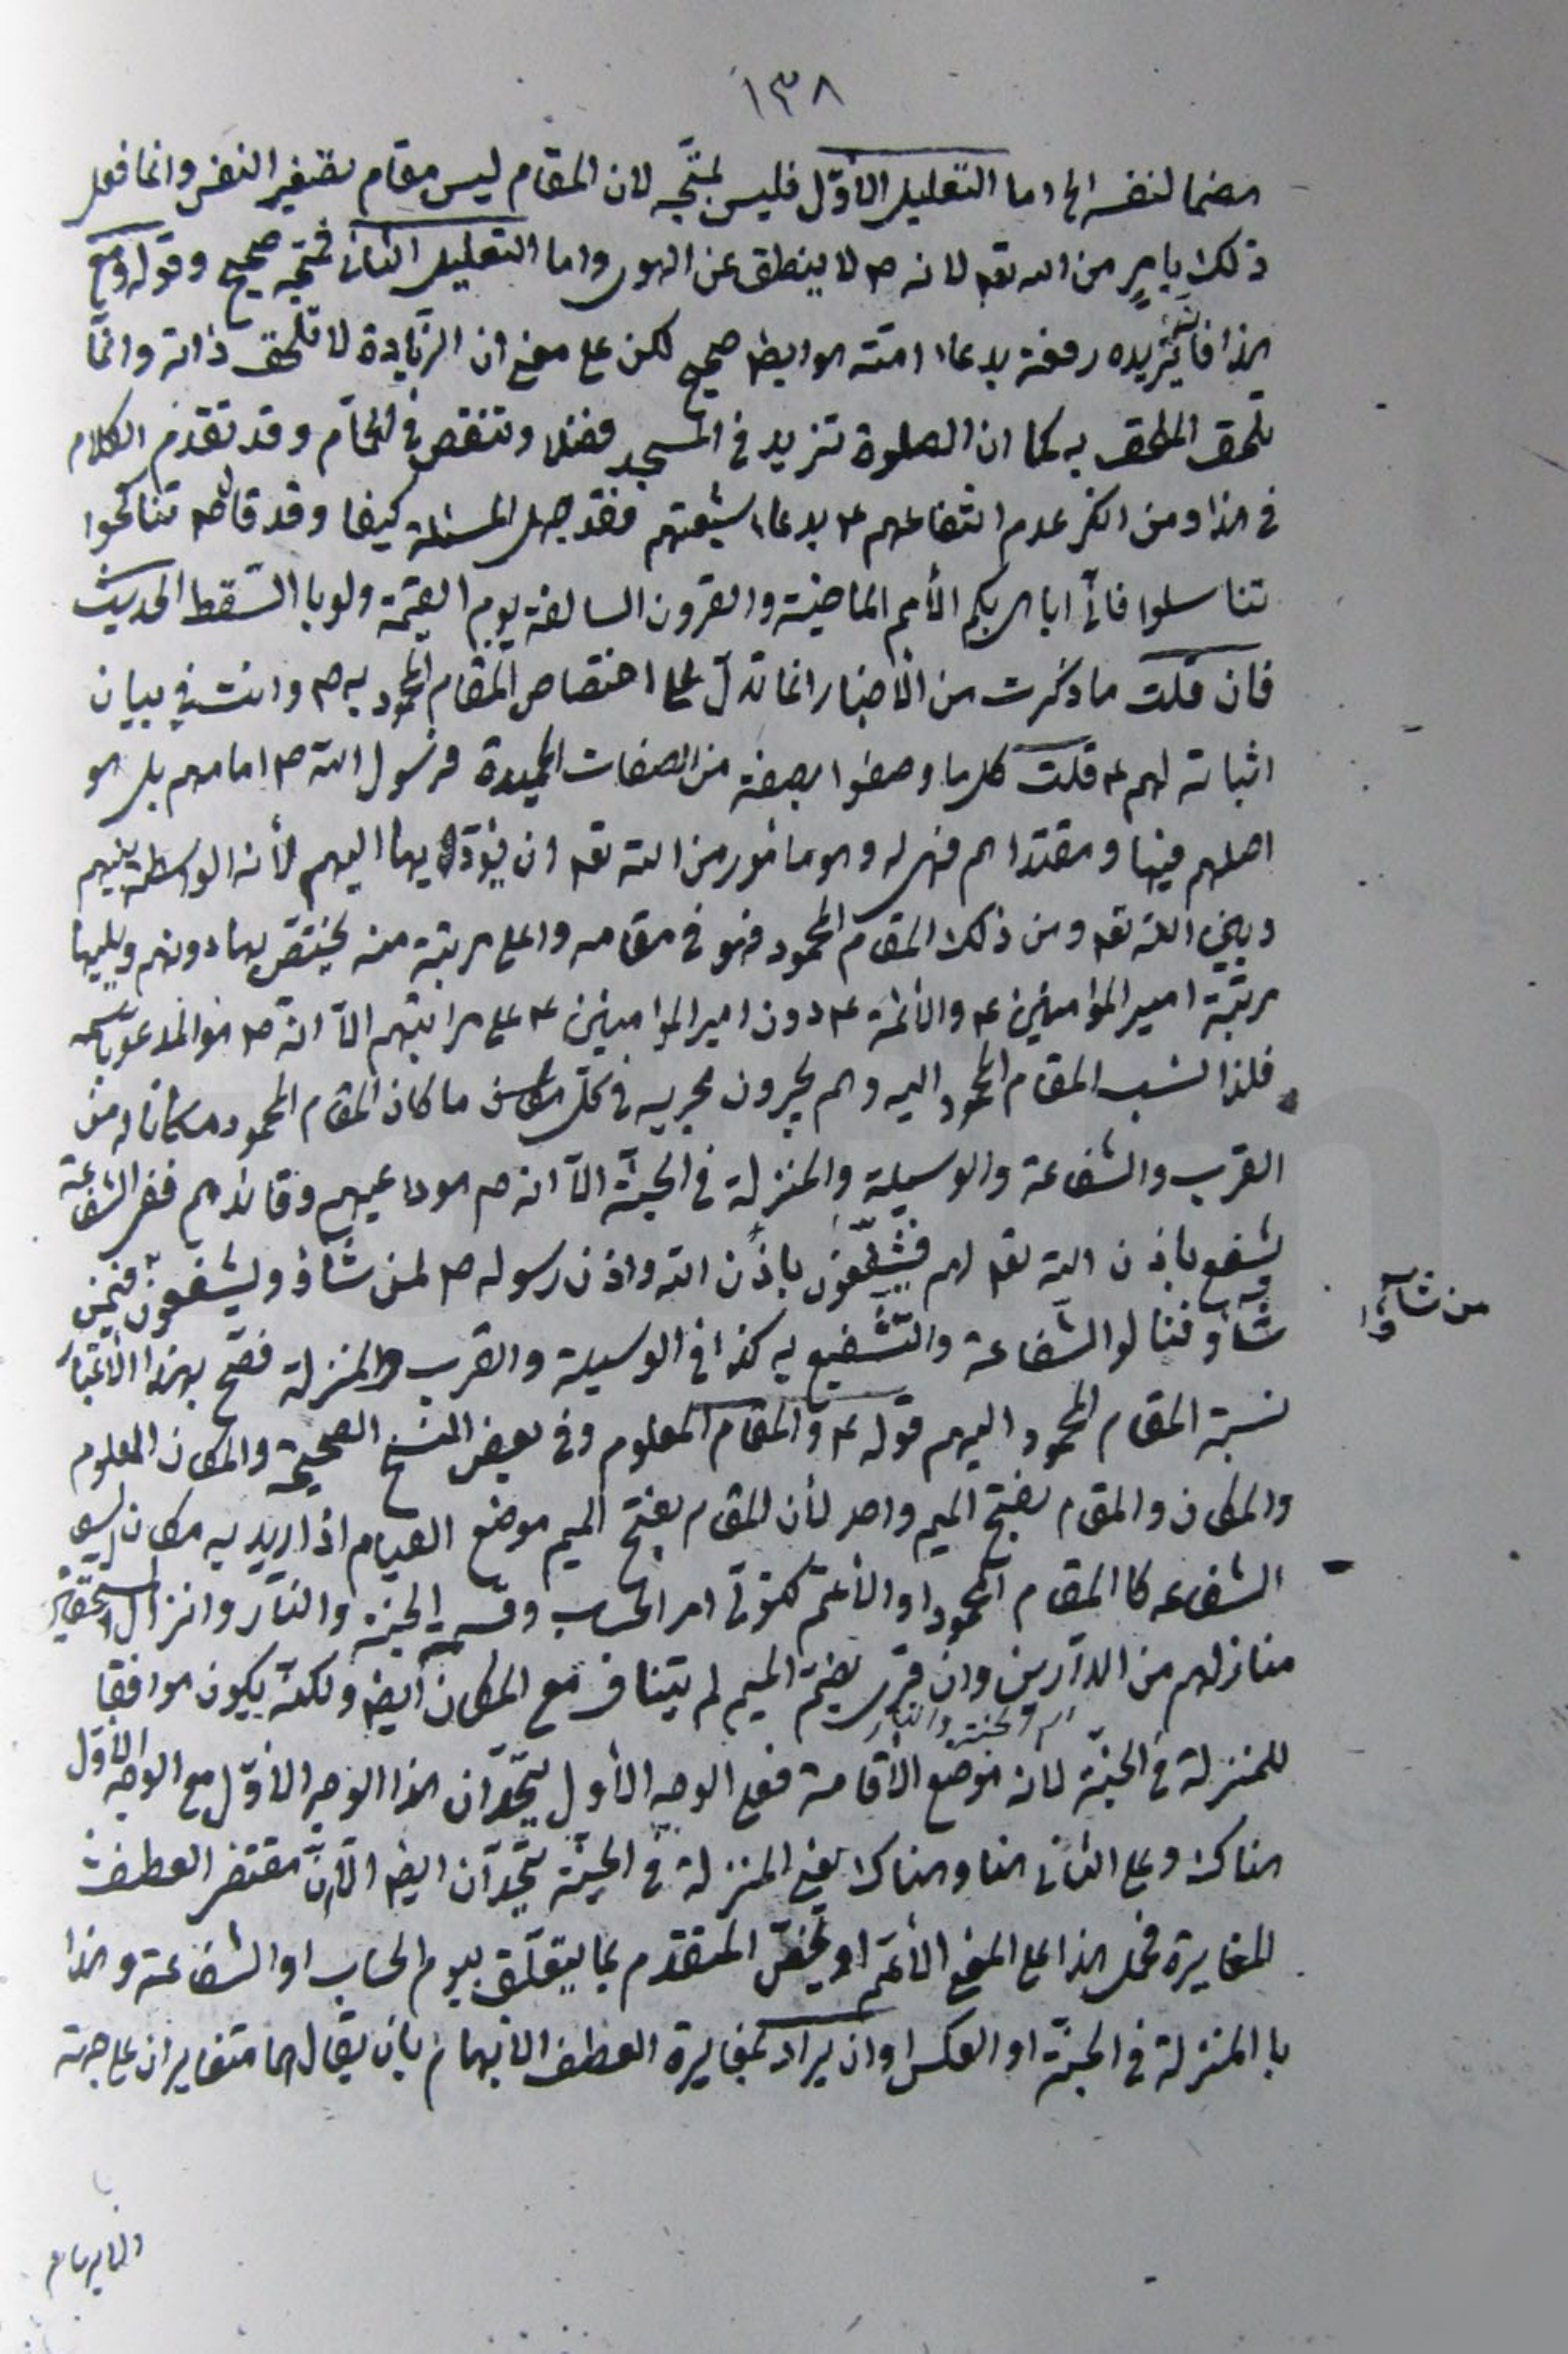 ١٣٨
هضما لنفسه الخ اما التعليل الأوّل فليس بمتّجه لان المقام ليس مقام تصغير النفس وانما فعل
ذلك بامرٍ من الله تعه لانه ص لا ينطق عن الهوى واما التعليل الثانى فمتّجه صحيح وقوله ومع
هذا فانه يزيده رفعة بدعاء امته هو ايضا صحيح لكن على معنى ان الزّيادة لا تلحق ذاته وانّما
تلحق الملحق به كما ان الصلوة تزيد في المسجد فضلا وتنقص في الحمّام وقد تقدّم الكلام
في هذا ومن انكر عدم انتفاعهم ع بدعاء شيعتهم فقد جهل المسئلة كيف وقد قال ص تناكحوا
تناسلوا فانّى اباهى بكم الأمم الماضية والقرون السالفة يوم القيٰمة ولو بالسّقط الحديث
فان قلت ما ذكرت من الأخبار انما تدلّ على اختصاص المقام المحمود به ص وانت في بيان
اثباته لهم ع قلت كل ما وصفوا بصفة من الصفات الحميدة فرسول الله ص امامهم بل هو
اصلهم فيها ومقتداهم فهى له وهو مامور من الله تعه ان يؤدّيها اليهم لأنه الواسطة بينهم
وبين الله تعه ومن ذلك المقام المحمود فهو في مقامه واعلى مرتبة منه يختص بها دونهم ويليها
مرتبة امير المؤمنين ع والائمة ع دون امير المؤمنين ع على مراتبهم الّا انّه ص هو المدعو باسمه
فلذا نسب المقام المحمود اليه وهم يجرون مجريه في كلّ ما كان المقام المحمود مكانا له من
القرب والشفاعة والوسيلة والمنزلة في الجنّة الّا انه ص هو داعيهم وقائدهم ففى الشفاعة
يشفع باذن الله تعه لهم فيشفّعون باذن الله واذن رسوله ص لمن شاؤ ويشفعون فيمن
من شاؤا
شاؤ فنالوا الشفاعة والتّشفيع به كذا في الوسيلة والقرب والمنزلة فصحّ بهذا الأعتبار
نسبة المقام المحمود اليهم قوله ع والمقام المعلوم وفي بعض النسخ الصحيحة والمكان المعلوم
والمكان والمقام بفتح الميم واحد لأن المقام بفتح الميم موضع القيام اذا اريد به مكان
الشفاعه كالمقام المحمود او الأعم كتولّى امر الحساب وقسمة الجنة والنّار وانزال المستحقين
منازلهم من الدّارين وان قرى بضمّ الميم لم يتناف مع المكان ايضا ولكنّه يكون موافقا
للمنزلة في الجنّة لأنه موضع الأقامة فعلى الوجه الأول يتّحد ان هذا الوجه الأوّل مع الوجه الأوّل
هناك وعلى الثانى هنا وهناك يعنى المنزلة في الجنّة يتّحد ان ايضا الّا انّ مقتضى العطف
المغايرة فيحمل هذا على المعنى الأعمّ او يخصّ المتقدّم بما يتعلّق بيوم الحساب او الشفاعة وهذا
با المنزلة في الجنّة او العكس او ان يراد بمغايرة العطف الأبهام بان يقال هما متغايران على جهة
الابهام